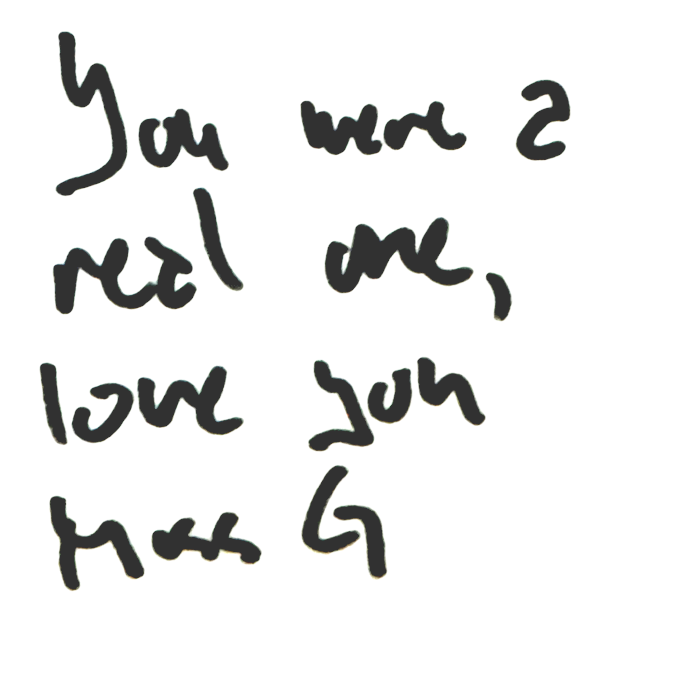 You were a
real one,
love you
Mass G